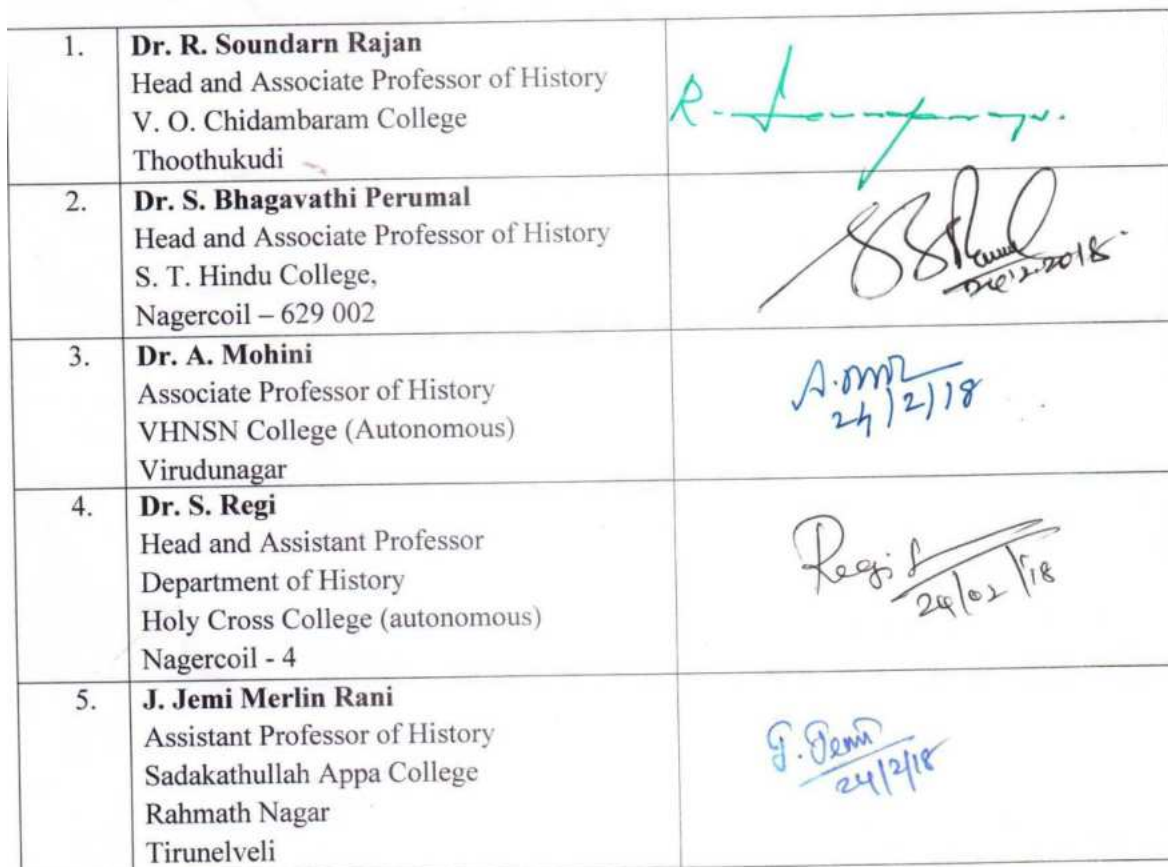 1.
Dr. R. Soundarn Rajan
Head and Associate Professor of History
V. O. Chidambaram College
Thoothukudi
R.
2.
Dr. S. Bhagavathi Perumal
Head and Associate Professor of History
S. T. Hindu College,
Nagercoil – 629 002
24.2.2018
3.
Dr. A. Mohini
Associate Professor of History
VHNSN College (Autonomous)
Virudunagar
A.
24/2/18
4.
Dr. S. Regi
Head and Assistant Professor
Department of History
Holy Cross College (autonomous)
Nagercoil - 4
Regi S
24/02/18
5.
J. Jemi Merlin Rani
Assistant Professor of History
Sadakathullah Appa College
Rahmath Nagar
Tirunelveli
J. Jemi
24/2/18